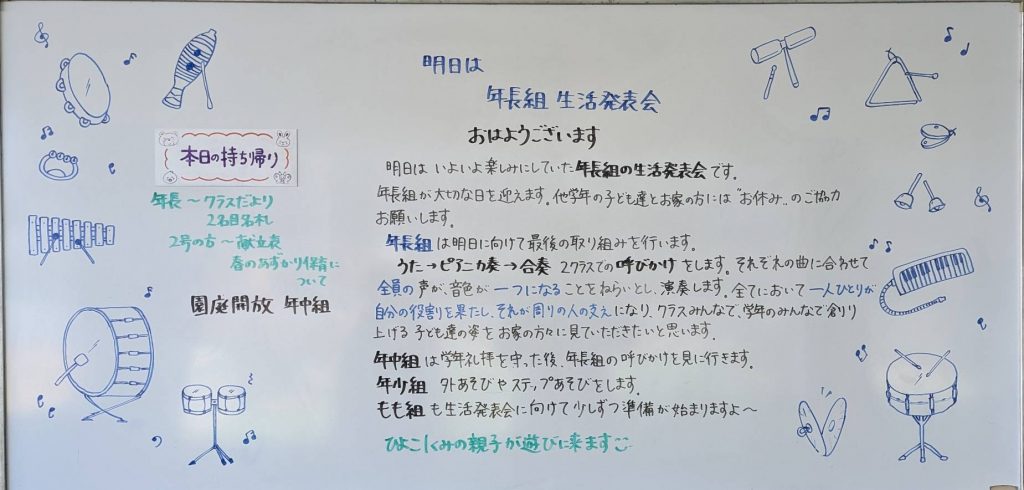 明日は
年長組 生活発表会
おはようございます
明日は いよいよ楽しみにしていた 年長組の生活発表会 です。
年長組が大切な日を迎えます。他学年の子ども達とお家の方には"お休み"のご協力
お願いします。
年長組 は明日に向けて最後の取り組みを行います。
うた→ピアニカ奏→合奏 2クラスでの呼びかけ をします。それぞれの曲に合わせて
全員の声が、音色が 一つになる ことをねらいとし、演奏します。全てにおいて一人ひとりが
自分の役割を果たし、それが周りの人の支え になり、クラスみんなで、学年のみんなで創り
上げる 子ども達の姿を お家の方々に見ていただきたいと思います。
年中組 は学年礼拝を守った後、年長組の呼びかけを見に行きます。
年少組 外あそびや ステップあそびをします。
もも組 も生活発表会に向けて少しずつ準備が始まりますよ〜
ひよこぐみの親子が遊びに来ます
本日の持ち帰り
年長〜クラスだより
2名目名札
2号の方〜献立表
春のあずかり保育に
ついて
園庭開放 年中組